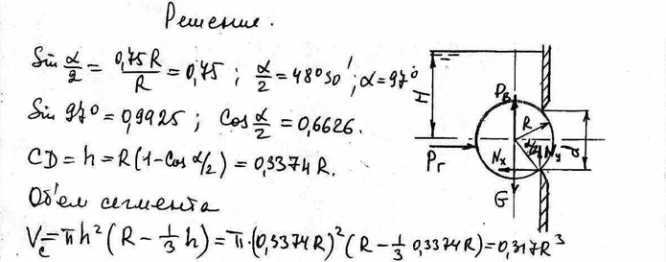 Решение.
Sin α/2 = 0,75R/R = 0,75 ; α/2 = 48°30' ; α = 97°
Sin 97° = 0,9925 ; Cos α/2 = 0,6626.
CD = h = R(1-Cos α/2) = 0,3374 R.
Об'ем сегмента
Vc = πh²(R - 1/3 h) = π·(0,3374R)²(R - 1/3 0,3374R) = 0,317R³
H
Pв
R
d
α/2
Nу
Nx
Pг
G